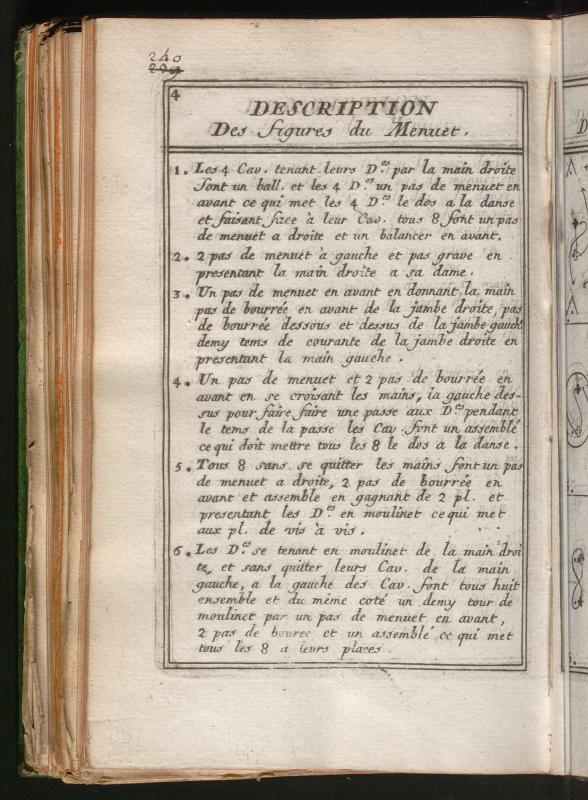 240
229
4
DESCRIPTION
Des figures du Menuet.
1. Les 4 Cav. tenant leurs D.es par la main droite
font un ball. et les 4 D.es un pas de menuet en
avant ce qui met les 4 D.es le dos a la danse
et faisant face à leur Cav. tous 8 font un pas
de menuet a droite et un balancer en avant.
2. 2 pas de menuet à gauche et pas grave en
presentant la main droite a sa dame.
3. Un pas de menuet en avant en donnant la main
pas de bourrée en avant de la jambe droite, pas
de bourrée dessous et dessus de la jambe gauche
demy tems de courante de la jambe droite en
presentant la main gauche.
4. Un pas de menuet et 2 pas de bourrée en
avant en se croisant les mains, la gauche des-
sus pour faire faire une passe aux D.es pendant
le tems de la passe les Cav. font un assemblé
ce qui doit mettre tous les 8 le dos a la danse.
5. Tous 8 sans se quitter les mains font un pas
de menuet a droite, 2 pas de bourrée en
avant et assemble en gagnant de 2 pl. et
presentant les D.es en moulinet ce qui met
aux pl. de vis à vis.
6. Les D.es se tenant en moulinet de la main droi
te, et sans quitter leurs Cav. de la main
gauche, a la gauche des Cav. font tous huit
ensemble et du même coté un demy tour de
moulinet par un pas de menuet en avant,
2 pas de bouree et un assemblé ce qui met
tous les 8 a leurs places.